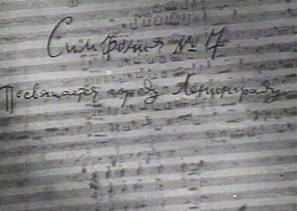 Симфония № 7
Посвящается городу Ленинграду